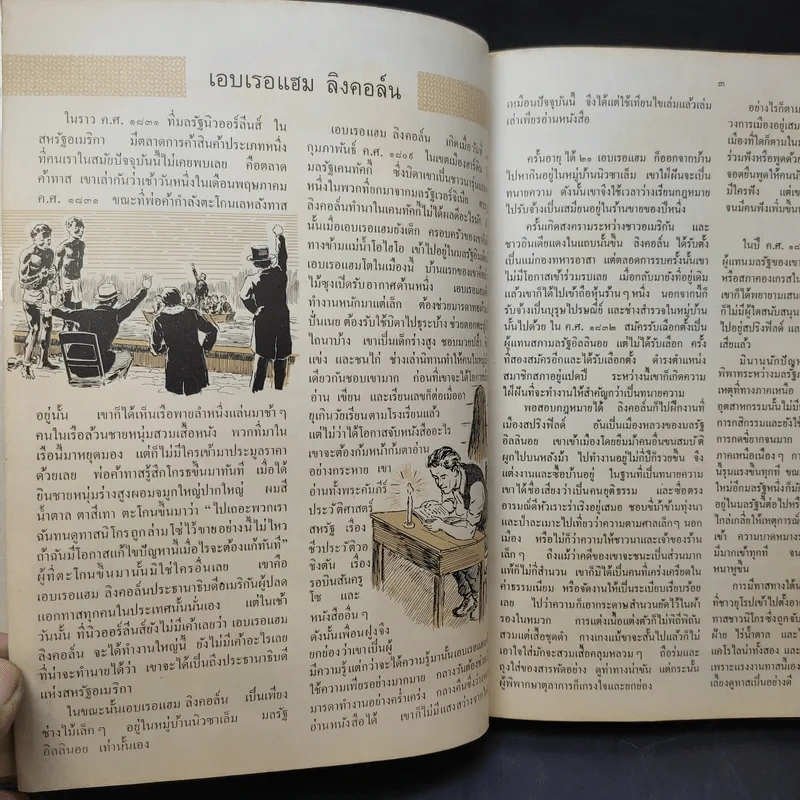 เอบเรอแฮม ลิงคอล์น
ในราว ค.ศ. ๑๘๓๑ ที่มลรัฐนิวออร์ลีนส์ ใน
สหรัฐอเมริกา มีตลาดการค้าสินค้าประเภทหนึ่ง
ที่คนเราในสมัยปัจจุบันนี้ไม่เคยพบเลย คือตลาด
ค้าทาส เขาเล่ากันว่าเช้าวันหนึ่งในเดือนพฤษภาคม
ค.ศ. ๑๘๓๑ ขณะที่พ่อค้ากำลังตะโกนเลหลังทาส
อยู่นั้น เขาก็ได้เห็นเรือพายลำหนึ่งแล่นมาช้าๆ
คนในเรือล้วนชายหนุ่มสวมเสื้อหนัง พวกที่มาใน
เรือนี้มาหยุดมอง แต่ก็ไม่มีใครเข้ามาประมูลราคา
ด้วยเลย พ่อค้าทาสรู้สึกโกรธขึ้นมาทันที เมื่อได้
ยินชายหนุ่มร่างสูงผอมจมูกใหญ่ปากใหญ่ ผมสี
น้ำตาล ตาสีเทา ตะโกนขึ้นมาว่า “ไปเถอะพวกเรา
ฉันทนดูทาสนิโกรถูกล่ามโซ่ไว้ขายอย่างนี้ไม่ไหว
ถ้าฉันมีโอกาสแก้ไขปัญหานี้เมื่อไรจะต้องแก้ทันที”
ผู้ที่ตะโกนขึ้นมานั้นมิใช่ใครอื่นเลย เขาคือ
เอบเรอแฮม ลิงคอล์นประธานาธิบดีอเมริกันผู้ปลด
แอกทาสทุกคนในประเทศนั้นนั่นเอง แต่ในเช้า
วันนั้น ที่นิวออร์ลีนส์ยังไม่มีเค้าเลยว่า เอบเรอแฮม
ลิงคอล์น จะได้ทำงานใหญ่นี้ ยังไม่มีเค้าอะไรเลย
ที่น่าจะทำนายได้ว่า เขาจะได้เป็นถึงประธานาธิบดี
แห่งสหรัฐอเมริกา
ในขณะนั้นเอบเรอแฮม ลิงคอล์น เป็นเพียง
ช่างไม้เล็กๆ อยู่ในหมู่บ้านนิวซาเล็ม มลรัฐ
อิลลินอย เท่านั้นเอง
เอบเรอแฮม ลิงคอล์น เกิดเมื่อวันที่
กุมภาพันธ์ ค.ศ. ๑๘๐๙ ในเขตเมืองฮาร์ดิน
มลรัฐเคนทัคกี้ ซึ่งบิดาเขาเป็นชาวนารุ่นแรก
หนึ่งในพวกที่ยกมาจากมลรัฐเวอร์จิเนีย
ลิงคอล์นทำนาในเคนทัคกี้ไม่ได้ผลดีอะไร
นั้นเมื่อเอบเรอแฮมยังเด็ก ครอบครัวของเขา
ทางข้ามแม่น้ำโอไฮโอ เข้าไปอยู่ในมลรัฐอินเดียนา
เอบเรอแฮมโตในเมืองนี้ บ้านแรกของเขา
ไม้ซุงเปิดรับอากาศด้านหนึ่ง เอบเรอแฮม
ทำงานหนักมาแต่เล็ก ต้องช่วยมารดาทอ
ปั่นเนย ต้องรับใช้บิดาไปธุระบ้าง ช่วยตอก
ไถนาบ้าง เขาเป็นเด็กร่างสูง ชอบมวยปล้ำ
แข่ง และชนไก่ ช่างเล่านิทานทำให้คนในหมู่
เดียวกันชอบเขามาก ก่อนที่เขาจะได้โอกาส
อ่าน เขียน และเรียนเลขก็ต่อเมื่ออายุ
ยุเกินวัยเรียนตามโรงเรียนแล้ว
แต่ไม่ว่าได้โอกาสจับหนังสืออะไร
เขาจะต้องก้มหน้าก้มตาอ่าน
อย่างกระหาย เขา
อ่านทั้งพระคัมภีร์
ประวัติศาสตร์
สหรัฐ เรื่อง
ชีวประวัติวอ
ชิงตัน เรื่อง
รอบินสันครู
โซ และ
หนังสืออื่นๆ
ดังนั้นเพื่อนฝูงจึง
ยกย่องว่าเขาเป็นผู้
มีความรู้แต่กว่าจะได้ความรู้มานั้นเอบเรอแฮม
ใช้ความเพียรอย่างมากมาย กลางวันต้องช่วย
มารดาทำงานอย่างคร่ำเคร่ง กลางคืนซึ่งว่าง
อ่านหนังสือได้ เขาก็ไม่มีแสงสว่างจาก
๓
เหมือนปัจจุบันนี้ จึงได้แต่ใช้เทียนไขเล่มแล้วเล่ม
เล่าเพียรอ่านหนังสือ
ครั้นอายุ ได้ ๒๑ เอบเรอแฮม ก็ออกจากบ้าน
ไปหากินอยู่ในหมู่บ้านนิวซาเล็ม เขาใฝ่ฝันจะเป็น
ทนายความ ดังนั้นเขาจึงใช้เวลาว่างเรียนกฎหมาย
ไปรับจ้างเป็นเสมียนอยู่ในร้านขายของปีหนึ่ง
ครั้นเกิดสงครามระหว่างชาวอเมริกัน และ
ชาวอินเดียแดงในแถบนั้นขึ้น ลิงคอล์น ได้รับตั้ง
เป็นแม่กองทหารอาสา แต่ตลอดการรบครั้งนั้นเขา
ไม่มีโอกาสเข้าร่วมรบเลย เมื่อกลับมายังที่อยู่เดิม
แล้วเขาก็ได้ไปเข้าถือหุ้นร้านๆ หนึ่ง นอกจากนี้ก็
รับจ้างเป็นบุรุษไปรษณีย์ และช่างสำรวจในหมู่บ้าน
นั้นไปด้วย ใน ค.ศ. ๑๘๓๒ สมัครรับเลือกตั้งเป็น
ผู้แทนสภามลรัฐอิลลินอย แต่ไม่ได้รับเลือก ครั้ง
ที่สองสมัครอีกและได้รับเลือกตั้ง ดำรงตำแหน่ง
สมาชิกสภาอยู่แปดปี ระหว่างนี้เขาก็เกิดความ
ใฝ่ฝันที่จะทำงานให้สำคัญกว่าเป็นทนายความ
พอสอบกฎหมายได้ ลิงคอล์นก็ไปฝึกงานที่
เมืองสปริงฟีลด์ อันเป็นเมืองหลวงของมลรัฐ
อิลลินอย เขาเข้าเมืองโดยยืมม้าคนอื่นขนสมบัติ
ผูกไปบนหลังม้า ไปทำงานอยู่ไม่กี่ปีก็รวยขึ้น จึง
แต่งงาน และซื้อบ้านอยู่ ในฐานที่เป็นทนายความ
เขาได้ชื่อเสียงว่าเป็นคนยุติธรรม และซื่อตรง
อารมณ์ดีหัวเราะร่าเริงอยู่เสมอ ชอบขี่ม้าข้ามทุ่งนา
และป่าละเมาะไปเที่ยวว่าความตามศาลเล็กๆ นอก
เมือง หรือไม่ก็ว่าความให้ชาวนาและเจ้าของร้าน
เล็กๆ ถึงแม้ว่าคดีของเขาจะชนะเป็นส่วนมาก
แพ้ก็ไม่กี่สำนวน เขาก็มิได้เป็นคนที่เคร่งเครียดใน
ค่าธรรมเนียม หรือจัดงานให้เป็นระเบียบเรียบร้อย
เลย ไปว่าความก็เอากระดาษสำนวนยัดไว้ในผ้า
รองในหมวก การแต่งเนื้อแต่งตัวก็ไม่พิถีพิถัน
สวมแต่เสื้อชุดดำ กางเกงแม้จะจะสั้นไปแล้วก็ไม่
เอาใจใส่มักจะสวมเสื้อคลุมหลวมๆ ถือร่มและ
ถุงใส่ของสารพัดอย่าง ดูท่าทางน่าขัน แต่กระนั้น
ผู้พิพากษาตุลาการก็เกรงใจและยกย่อง
อย่างไรก็ตาม
วงการเมืองอยู่เสมอ
เมืองที่ใดก็ตามใน
ร่วมฟังหรือพูดด้วย
จอดยืนพูดให้คนนับ
มีใครฟัง แต่เขา
จนมีคนฟังเพิ่มขึ้น
ในปี ค.ศ. ๑๘
ผู้แทนมลรัฐของเขา
หรือสภาคองเกรสใน
เขาก็ได้พยายามเสนอ
ก็ไม่มีผู้ใดสนับสนุน
ไปอยู่สปริงฟีลด์
เสียแล้ว
มินานนักปัญหา
พิพาทระหว่างมลรัฐ
เหตุที่ทางภาคเหนือ
อุตสาหกรรมนั้นไม่มี
การกสิกรรมและยังใช้
การกดขี่ยากจนมาก
ภาคเหนือเนืองๆ กา
นี้รุนแรงขึ้นทุกที
ใหม่อีกมลรัฐหนึ่งก็มัก
อยู่ในมลรัฐนี้ต่อไปหรือ
ไกล่เกลี่ยให้เหตุการณ์
เข้า ความบาดหมาง
มีมากเข้าทุกที จน
หนาหูขึ้น
การมีทาสทางใต้
ที่ชาวยุโรปเข้าไปตั้ง
ทาสชาวนิโกรซึ่งถูกจับ
ฝ้าย ไร่น้ำตาล และ
แคโรไลน่าทั้งสอง และ
เพราะแรงงานทาสนี้เอง
เลี้ยงดูทาสเป็นอย่างดี